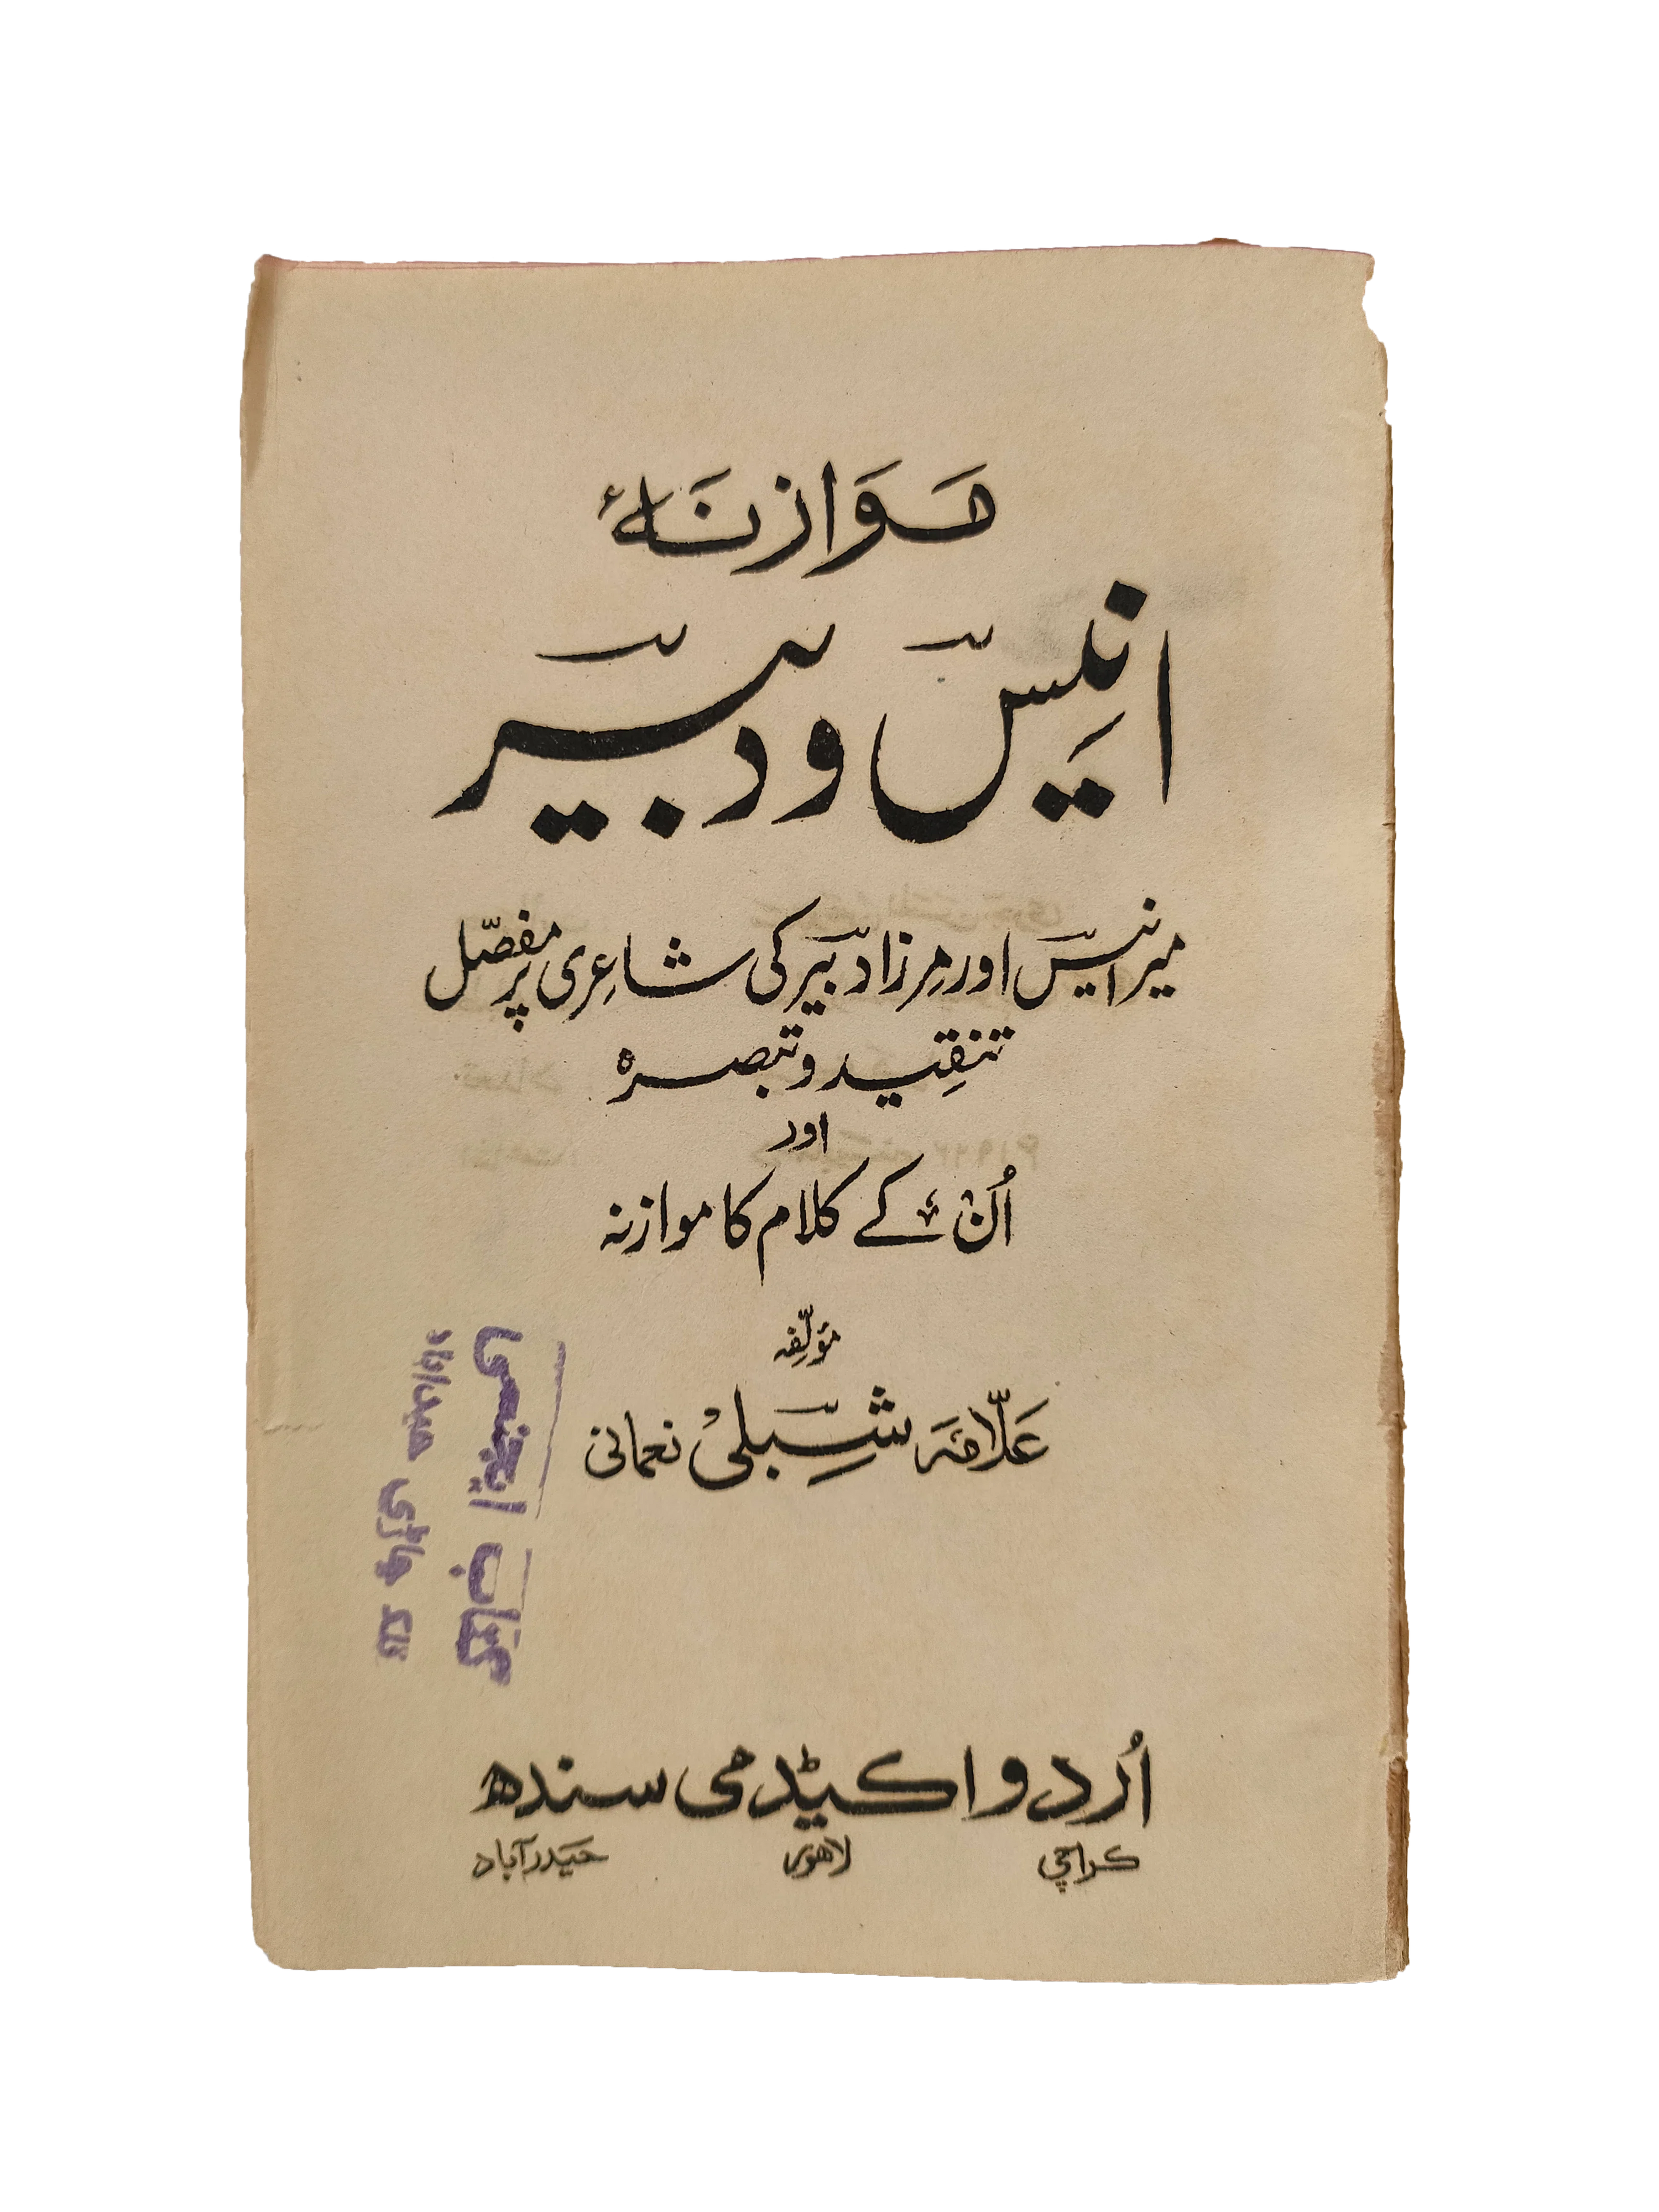 موازنۂ
انیسؔ و دبیرؔ
میر انیسؔ اور مِرزا دبیرؔ کی شاعِری پر مفصّل
تنقِید و تبصرہ
اور
اُن کے کلام کا موازنہ
مؤلّفِہ
علّامہ شبلیؔ نعمانی
کتاب ایجنسی
اُردو اکیڈمی سندھ
کراچی لاهور حیدرآباد